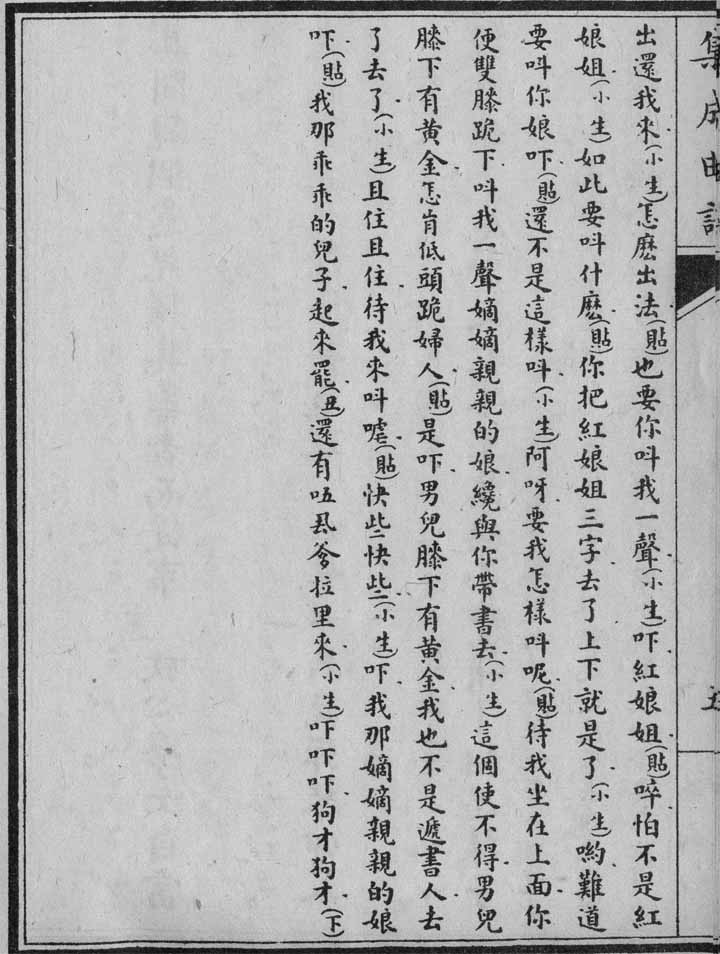 集成曲譜
五
出還我來(小生)怎麽出法(貼)也要你呌我一聲(小生)吓紅娘姐(貼)啐怕不是紅
娘姐(小生)如此要呌什麽(貼)你把紅娘姐三字去了上下就是了(小生)喲難道
要呌你娘吓(貼)還不是這樣呌(小生)阿呀要我怎樣呌呢(貼)待我坐在上面你
便雙膝跪下呌我一聲嫡嫡親親的娘纔與你帶書去(小生)這個使不得男兒
膝下有黃金怎肯低頭跪婦人(貼)是吓男兒膝下有黃金我也不是遞書人去
了去了(小生)且住且住待我來呌嘘(貼)快些快些(小生)吓我那嫡嫡親親的娘
吓(貼)我那乖乖的兒子起來罷(丑)還有㕶厾爹拉里來(小生)吓吓吓狗才狗才(下)